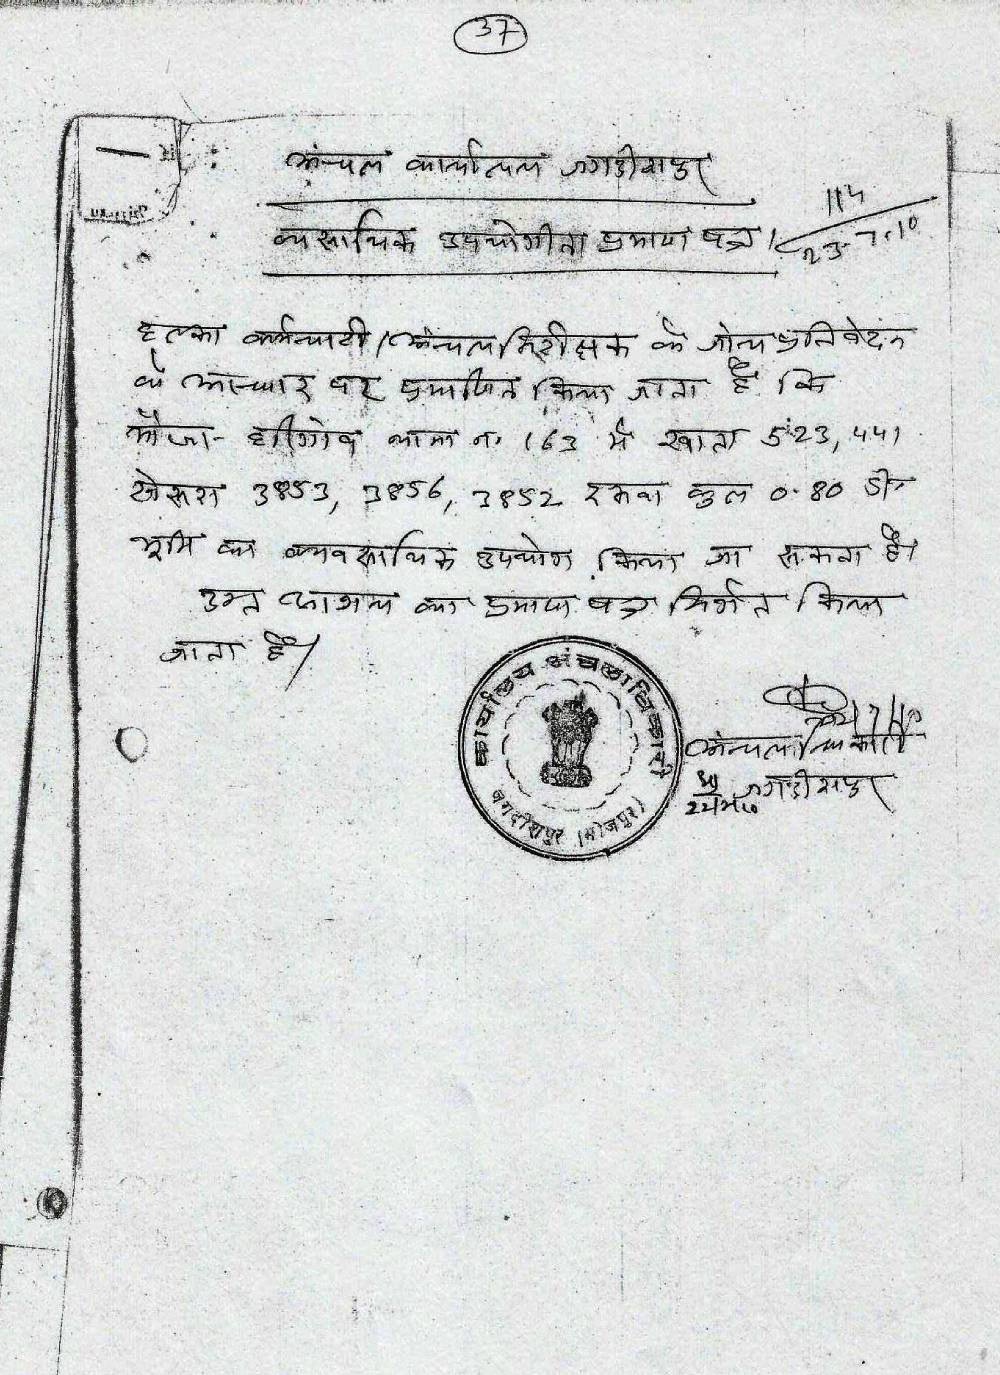 37
अंचल कार्यालय जगदीशपुर
व्यसायिक उपयोगीता प्रमाण पत्र।
114
23.7.10
हल्का कर्मचारी/अंचल निरीक्षक के जाँच प्रतिवेदन
के आधार पर प्रमाणित किया जाता है कि
मौजा- हरिगाँव थाना न० 163 में खाता 523, 441
खेसरा 3853, 3856, 3852 रकवा कुल 0.80 डी०
भूमि का व्यवसायिक उपयोग किया जा सकता है।
उक्त आशय का प्रमाण पत्र निर्गत किया
जाता है।
कार्यालय अंचलाधिकारी
जगदीशपुर (भोजपुर)
अंचलाधिकारी
जगदीशपुर